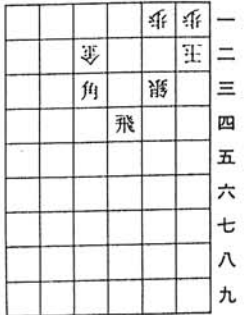 歩 歩 一
金 王 二
角 銀 三
飛 四
五
六
七
八
九